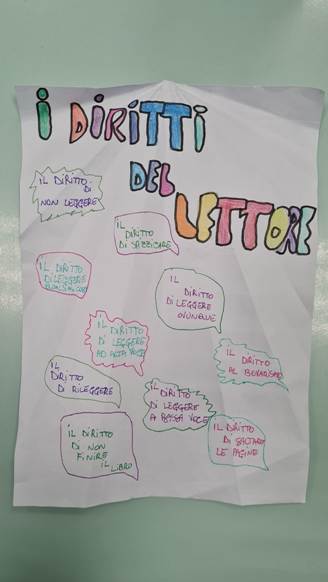 I DIRITTI
DEL
LETTORE
IL DIRITTO
DI
NON LEGGERE
IL
DIRITTO
DI SPIZZICARE
IL DIRITTO
DI LEGGERE
QUALSIASI COSA
IL
DIRITTO
DI LEGGERE
OVUNQUE
IL
DIRITTO
DI LEGGERE
AD ALTA VOCE
IL DIRITTO
AL BOVARISMO
IL
DIRITTO
DI RILEGGERE
IL
DIRITTO
DI LEGGERE
A BASSA VOCE
IL DIRITTO
DI NON
FINIRE
IL LIBRO
IL DIRITTO
DI SALTARE
LE PAGINE